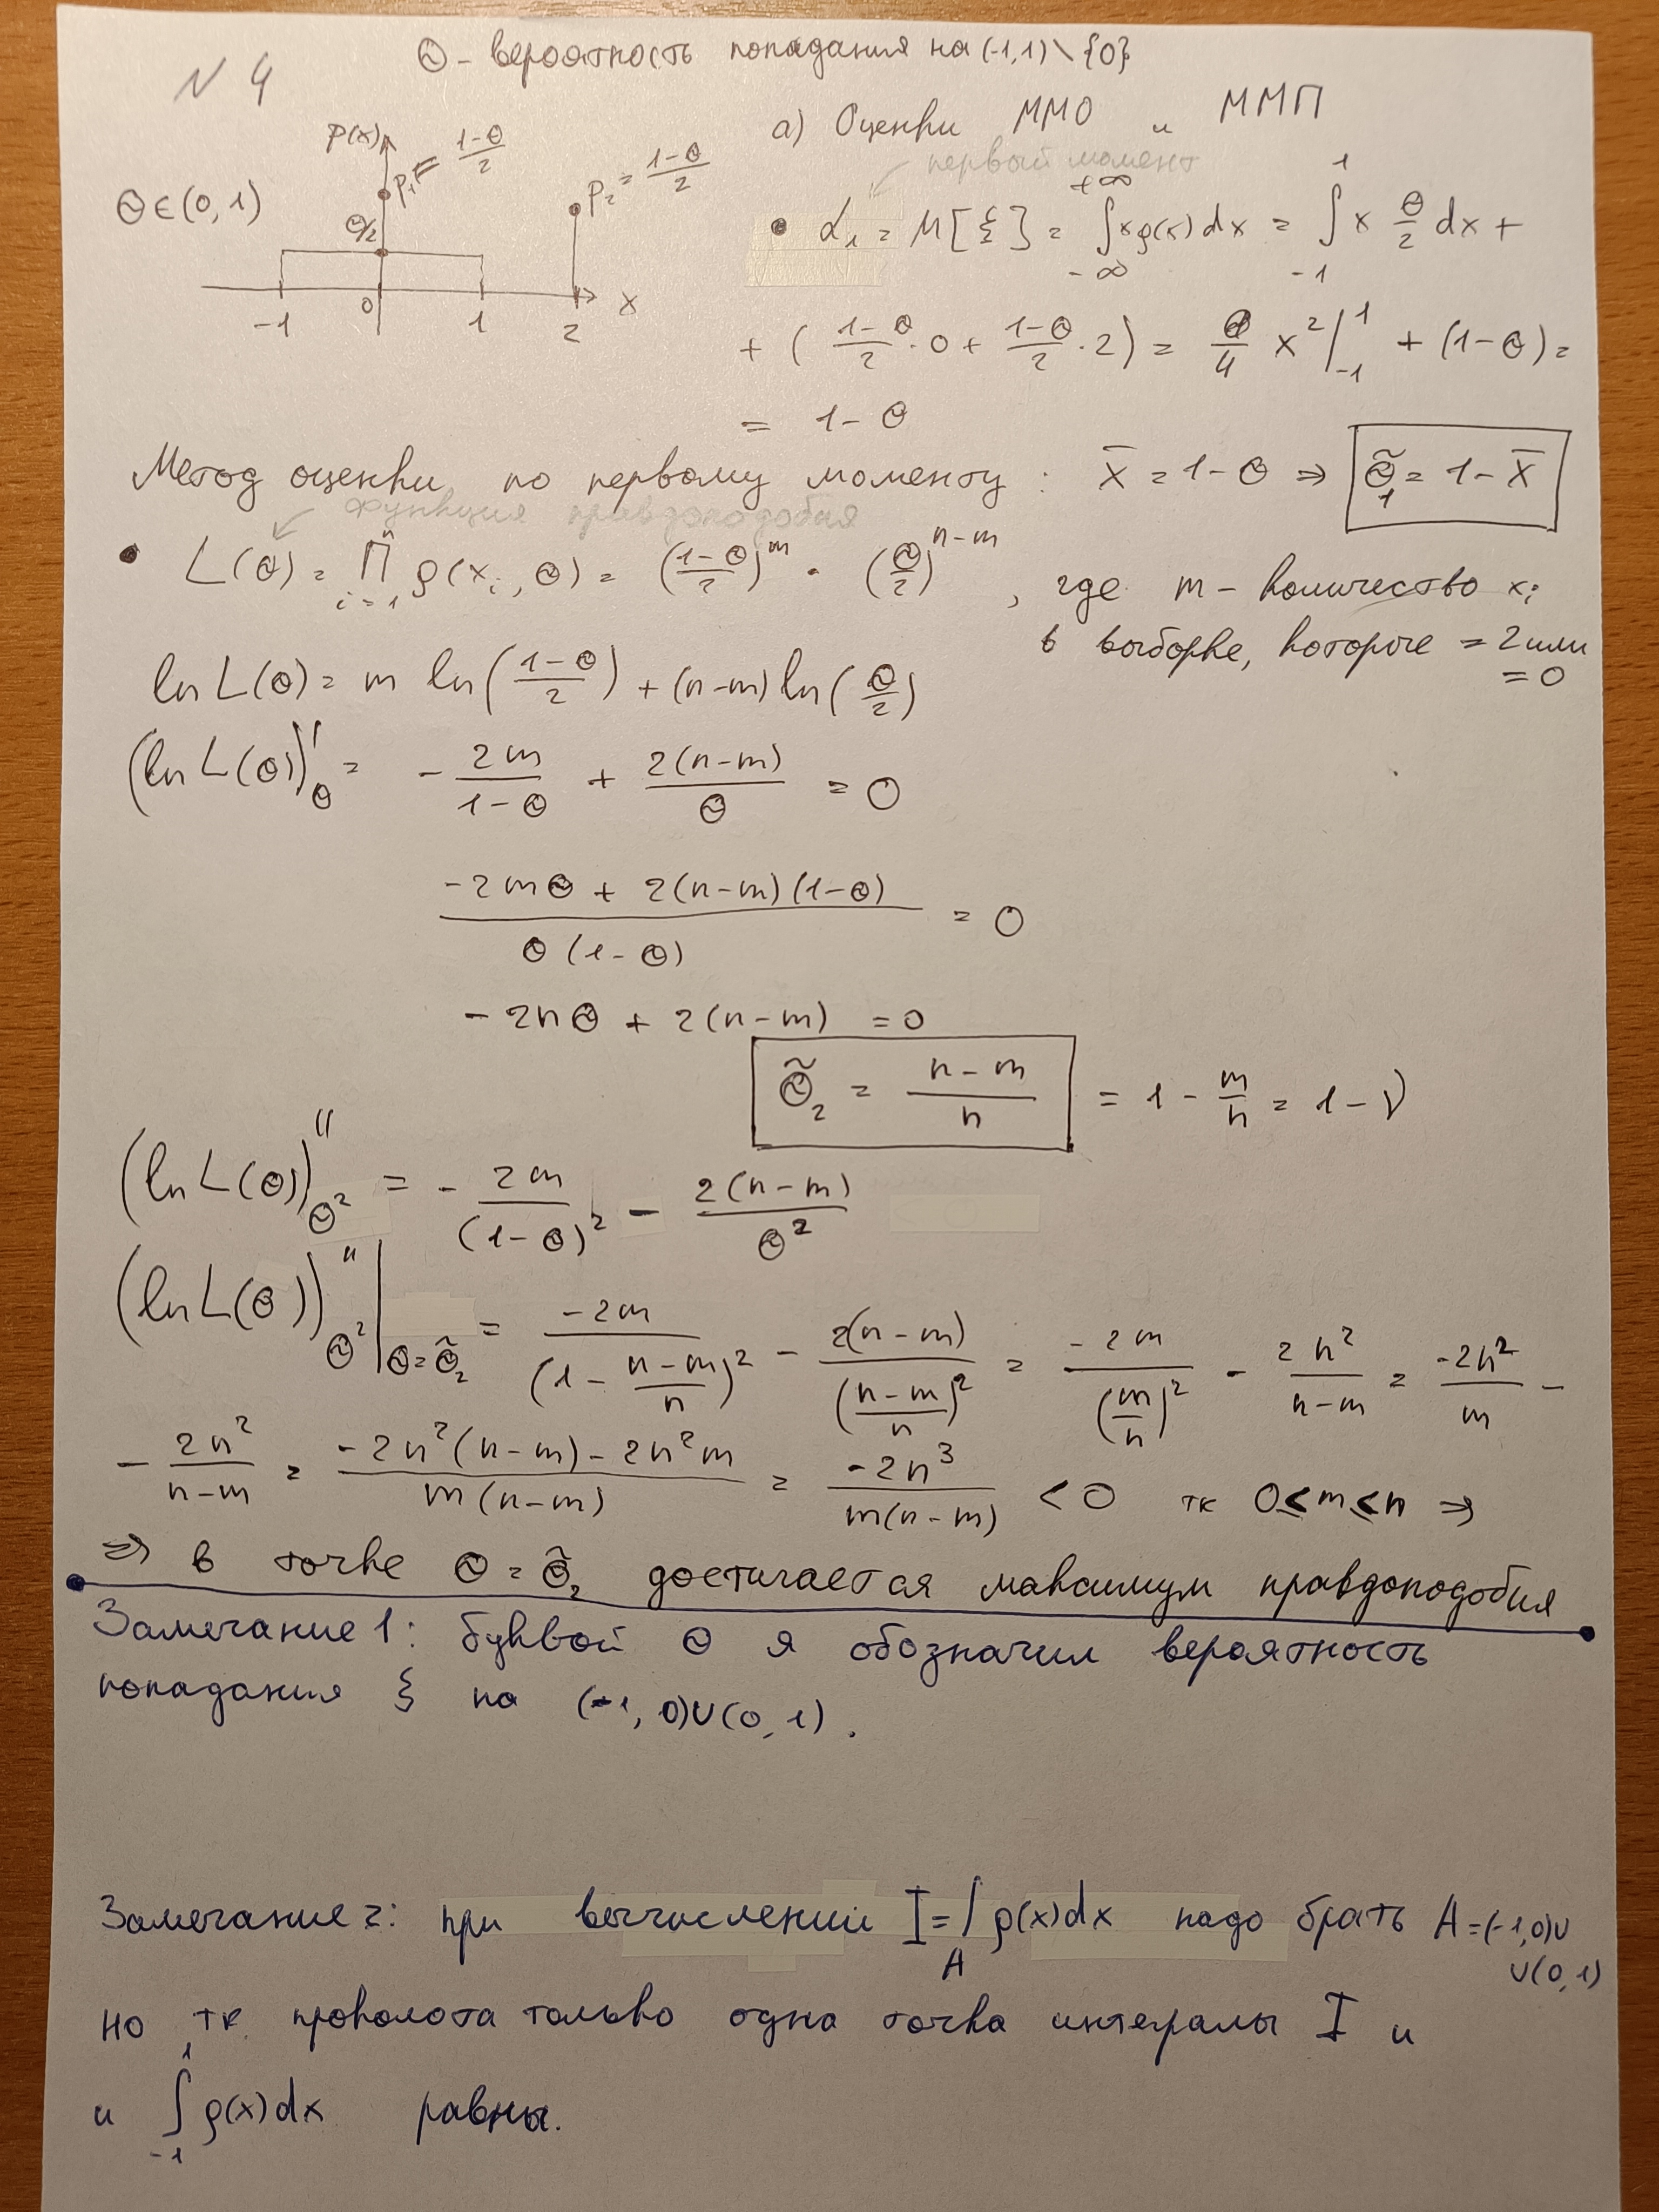 N 4
Θ - вероятность попадания на (-1,1) \ {0}
а) Оценки ММО и ММП
первый момент
Θ ∈ (0, 1)
p(x)
p₁ = (1-Θ)/2
p₂ = (1-Θ)/2
Θ/2
-1 0 1 2 x
• α₁ = M[ξ] = ∫_{-∞}^{+∞} xρ(x)dx = ∫_{-1}^{1} x Θ/2 dx +
+ ( (1-Θ)/2 · 0 + (1-Θ)/2 · 2) = Θ/4 x² |_{-1}^{1} + (1-Θ) =
= 1 - Θ
Метод оценки по первому моменту: x̄ = 1 - Θ ⇒ Θ̃₁ = 1 - x̄
функция правдоподобия
• L(Θ) = ∏_{i=1}^{n} ρ(xᵢ, Θ) = ((1-Θ)/2)^m · (Θ/2)^{n-m}, где m - количество xᵢ
в выборке, которые = 2 или
= 0
ln L(Θ) = m ln((1-Θ)/2) + (n-m) ln(Θ/2)
(ln L(Θ))'_Θ = - 2m/(1-Θ) + 2(n-m)/Θ = 0
(-2mΘ + 2(n-m)(1-Θ))/(Θ(1-Θ)) = 0
-2nΘ + 2(n-m) = 0
Θ̃₂ = (n-m)/n = 1 - m/n = 1 - ν
(ln L(Θ))''_{Θ²} = - 2m/(1-Θ)² - 2(n-m)/Θ²
(ln L(Θ))''_{Θ²} |_{Θ=Θ̃₂} = -2m/(1 - (n-m)/n)² - 2(n-m)/((n-m)/n)² = -2m/(m/n)² - 2n²/(n-m) = -2n²/m -
- 2n²/(n-m) = (-2n²(n-m) - 2n²m)/(m(n-m)) = -2n³/(m(n-m)) < 0 тк 0 ≤ m ≤ n ⇒
⇒ в точке Θ = Θ̃₂ достигается максимум правдоподобия
Замечание 1: буквой Θ я обозначил вероятность
попадания ξ на (-1, 0)∪(0, 1).
Замечание 2: при вычислении I = ∫_A ρ(x)dx надо брать A = (-1,0)∪
∪(0,1)
но, тк проколота только одна точка интегралы I и
и ∫_{-1}^{1} ρ(x)dx равны.